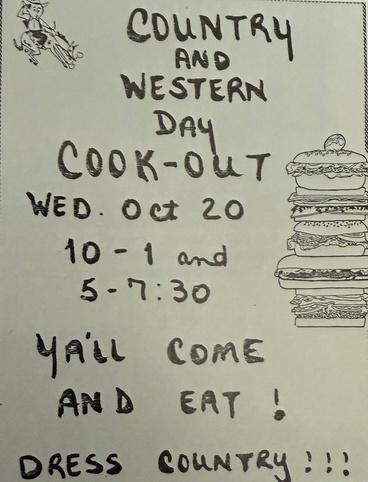 COUNTRY
AND
WESTERN
DAY
COOK-OUT
WED. Oct 20
10-1 and
5-7:30
YA'LL COME
AND EAT!
DRESS COUNTRY!!!